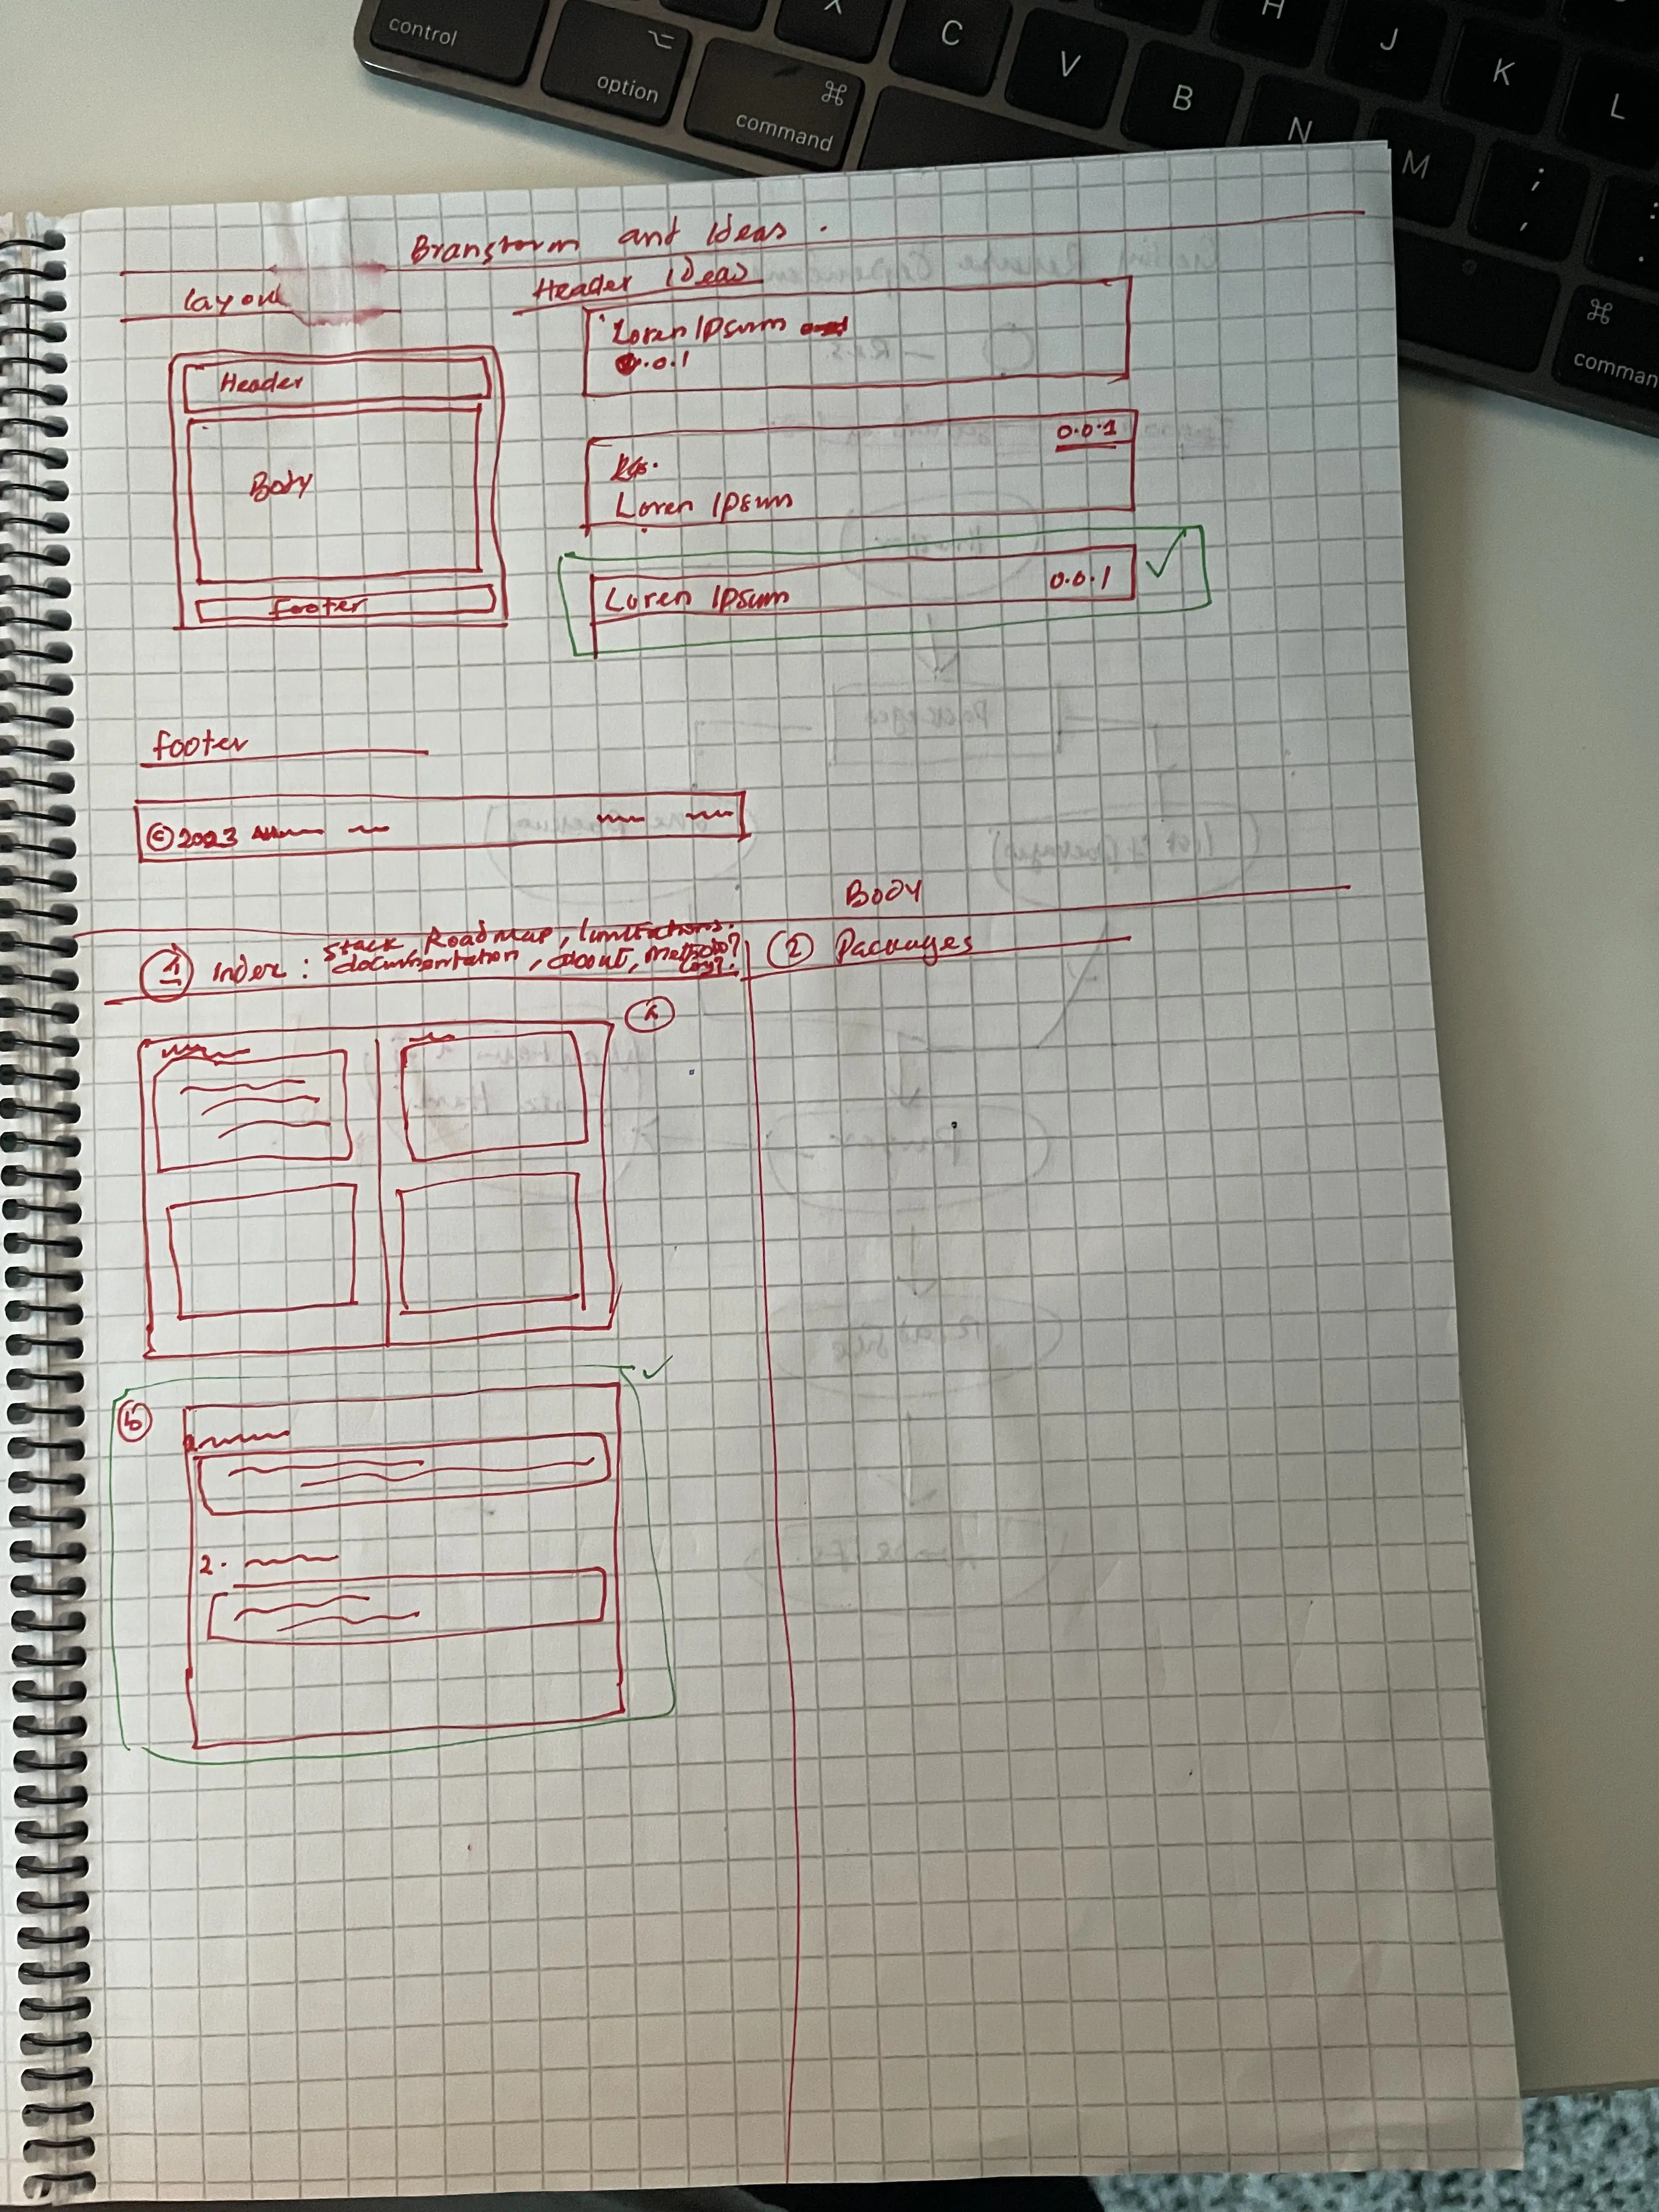 control
option
⌘
command
X
C
V
B
N
M
H
J
K
L
;
,
⌘
comman
Branstorm and Ideas.
Layout
Header Ideas
Header
Body
footer
Loren Ipsum
.0.1
0.0.1
Loren Ipsum
Loren Ipsum 0.0.1 ✓
footer
©2023
Body
1 Index: Stack, Roadmap, limitations.
documentation, about,
(2) Packages
b
✓
2.